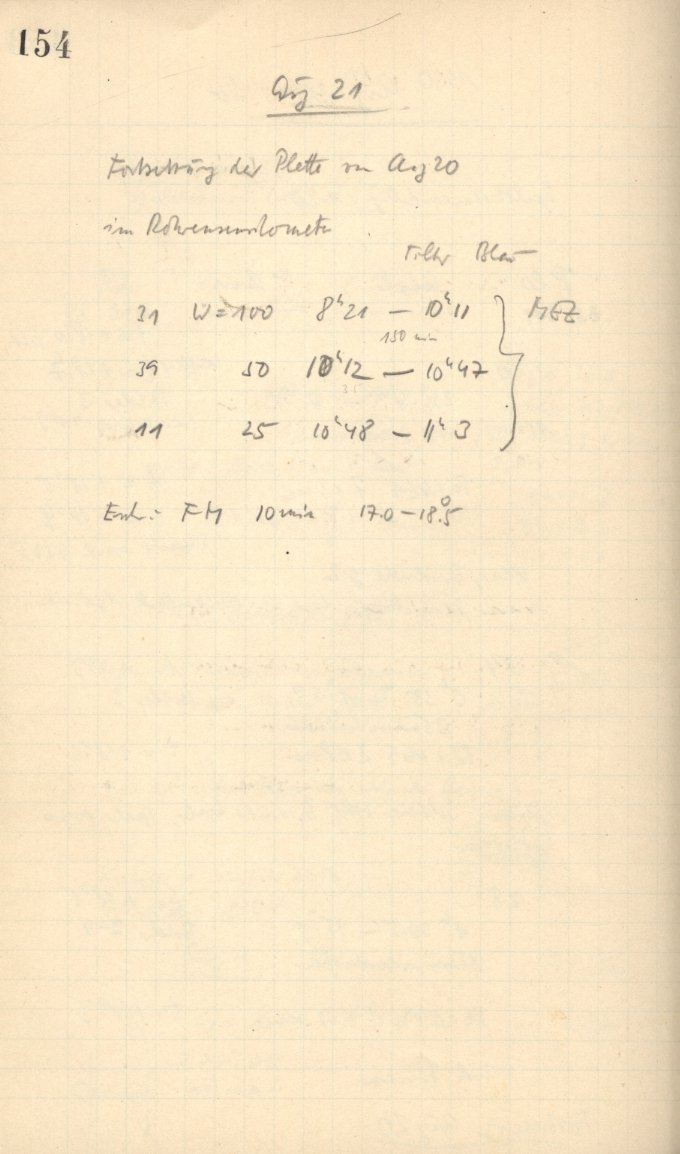 154
Aug 21
Fortsetzung der Platte von Aug 20
im Röhrensensitometer
Filter Blau
31 W=100 8h21 — 10h11 MEZ
150 min
39 50 10h12 — 10h47
35
11 25 10h48 — 11h 3
Entw.: FM 10 min 17.0 — 18.5°